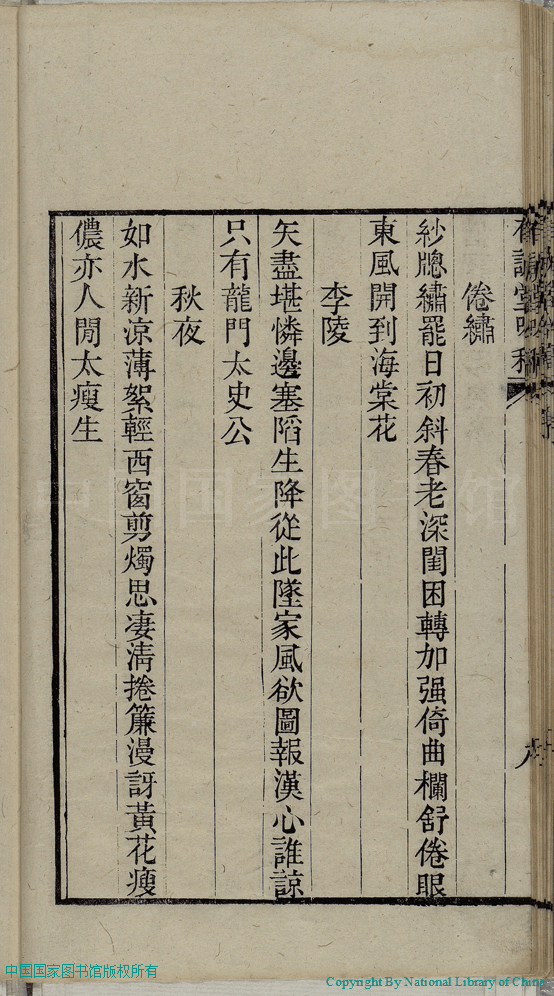 倦繡
紗牕繡罷日初斜春老深閨困轉加强倚曲欄舒倦眼
東風開到海棠花
李陵
矢盡堪憐邊塞陷生降從此墜家風欲圖報漢心誰諒
只有龍門太史公
秋夜
如水新涼薄絮輕西窗剪燭思凄淸捲簾漫訝黃花瘦
儂亦人閒太瘦生
中国国家图书馆
中国国家图书馆版权所有
Copyright By National Library of China